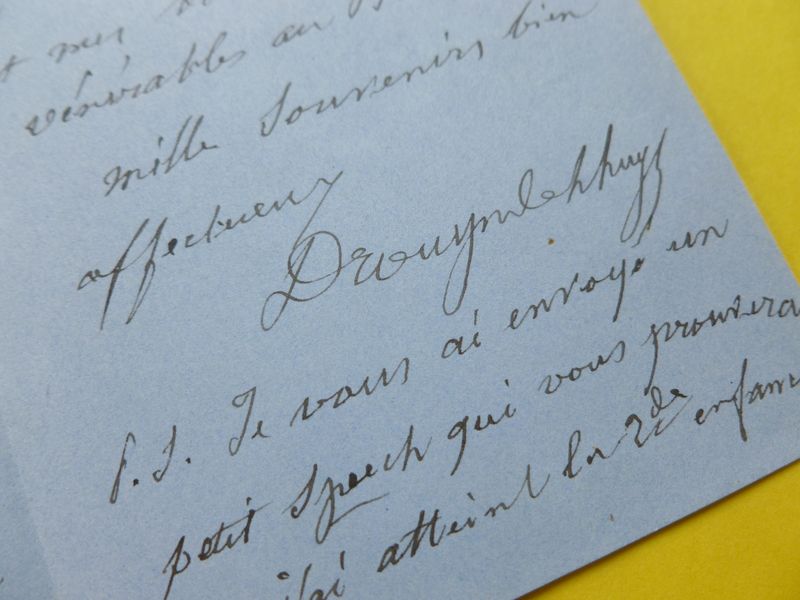 mes
vénérables au
mille souvenirs bien
affectueux
Drouyn de Lhuys
P.S. Je vous ai envoyé un
petit speech qui vous prouvera
j'ai atteint la 2de enfanc